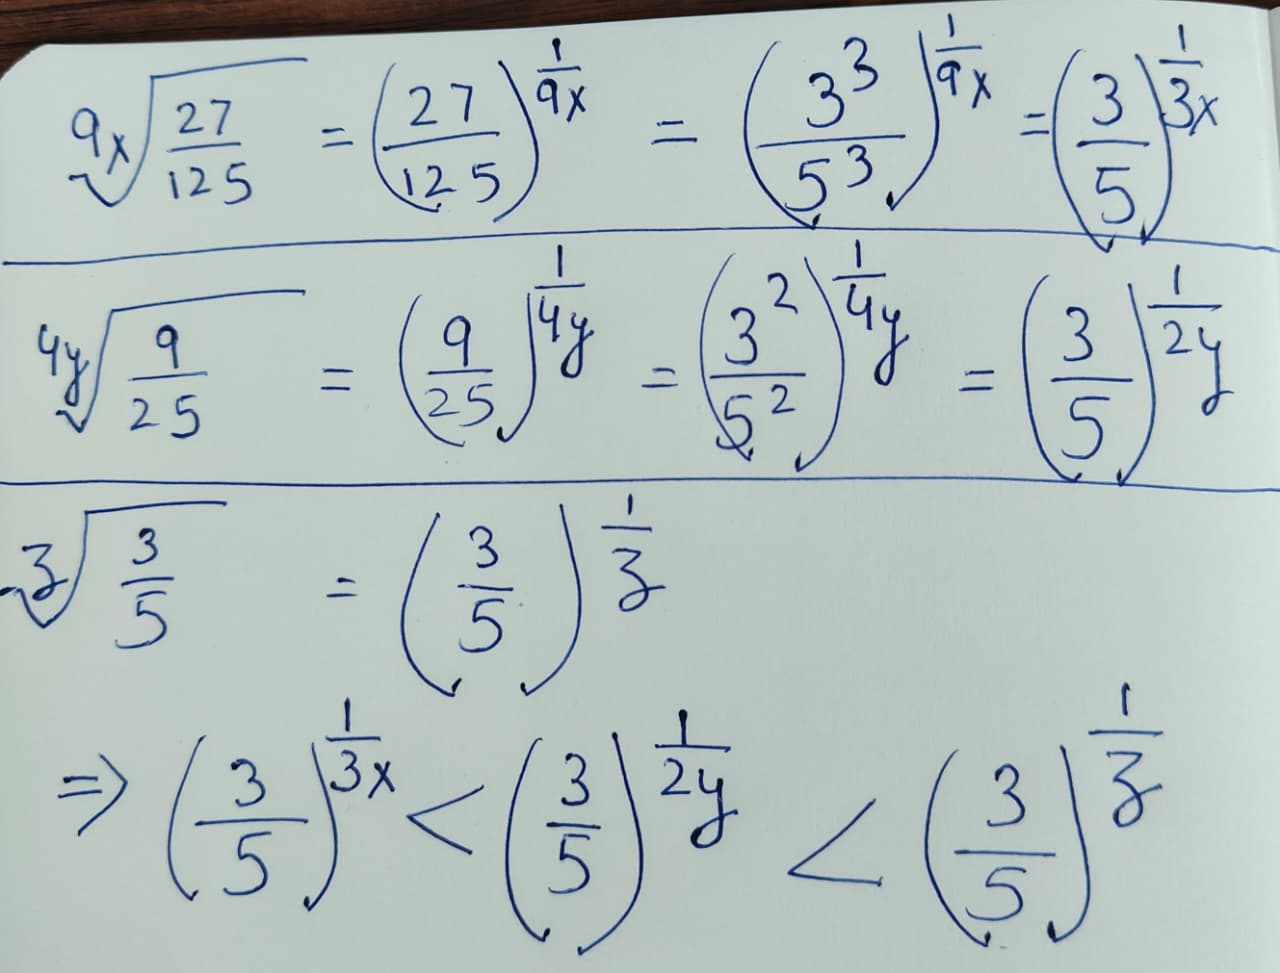 \sqrt[9x]{\frac{27}{125}} = \left(\frac{27}{125}\right)^{\frac{1}{9x}} = \left(\frac{3^3}{5^3}\right)^{\frac{1}{9x}} = \left(\frac{3}{5}\right)^{\frac{1}{3x}}
\sqrt[4y]{\frac{9}{25}} = \left(\frac{9}{25}\right)^{\frac{1}{4y}} = \left(\frac{3^2}{5^2}\right)^{\frac{1}{4y}} = \left(\frac{3}{5}\right)^{\frac{1}{2y}}
\sqrt[z]{\frac{3}{5}} = \left(\frac{3}{5}\right)^{\frac{1}{z}}
\Rightarrow \left(\frac{3}{5}\right)^{\frac{1}{3x}} < \left(\frac{3}{5}\right)^{\frac{1}{2y}} < \left(\frac{3}{5}\right)^{\frac{1}{z}}